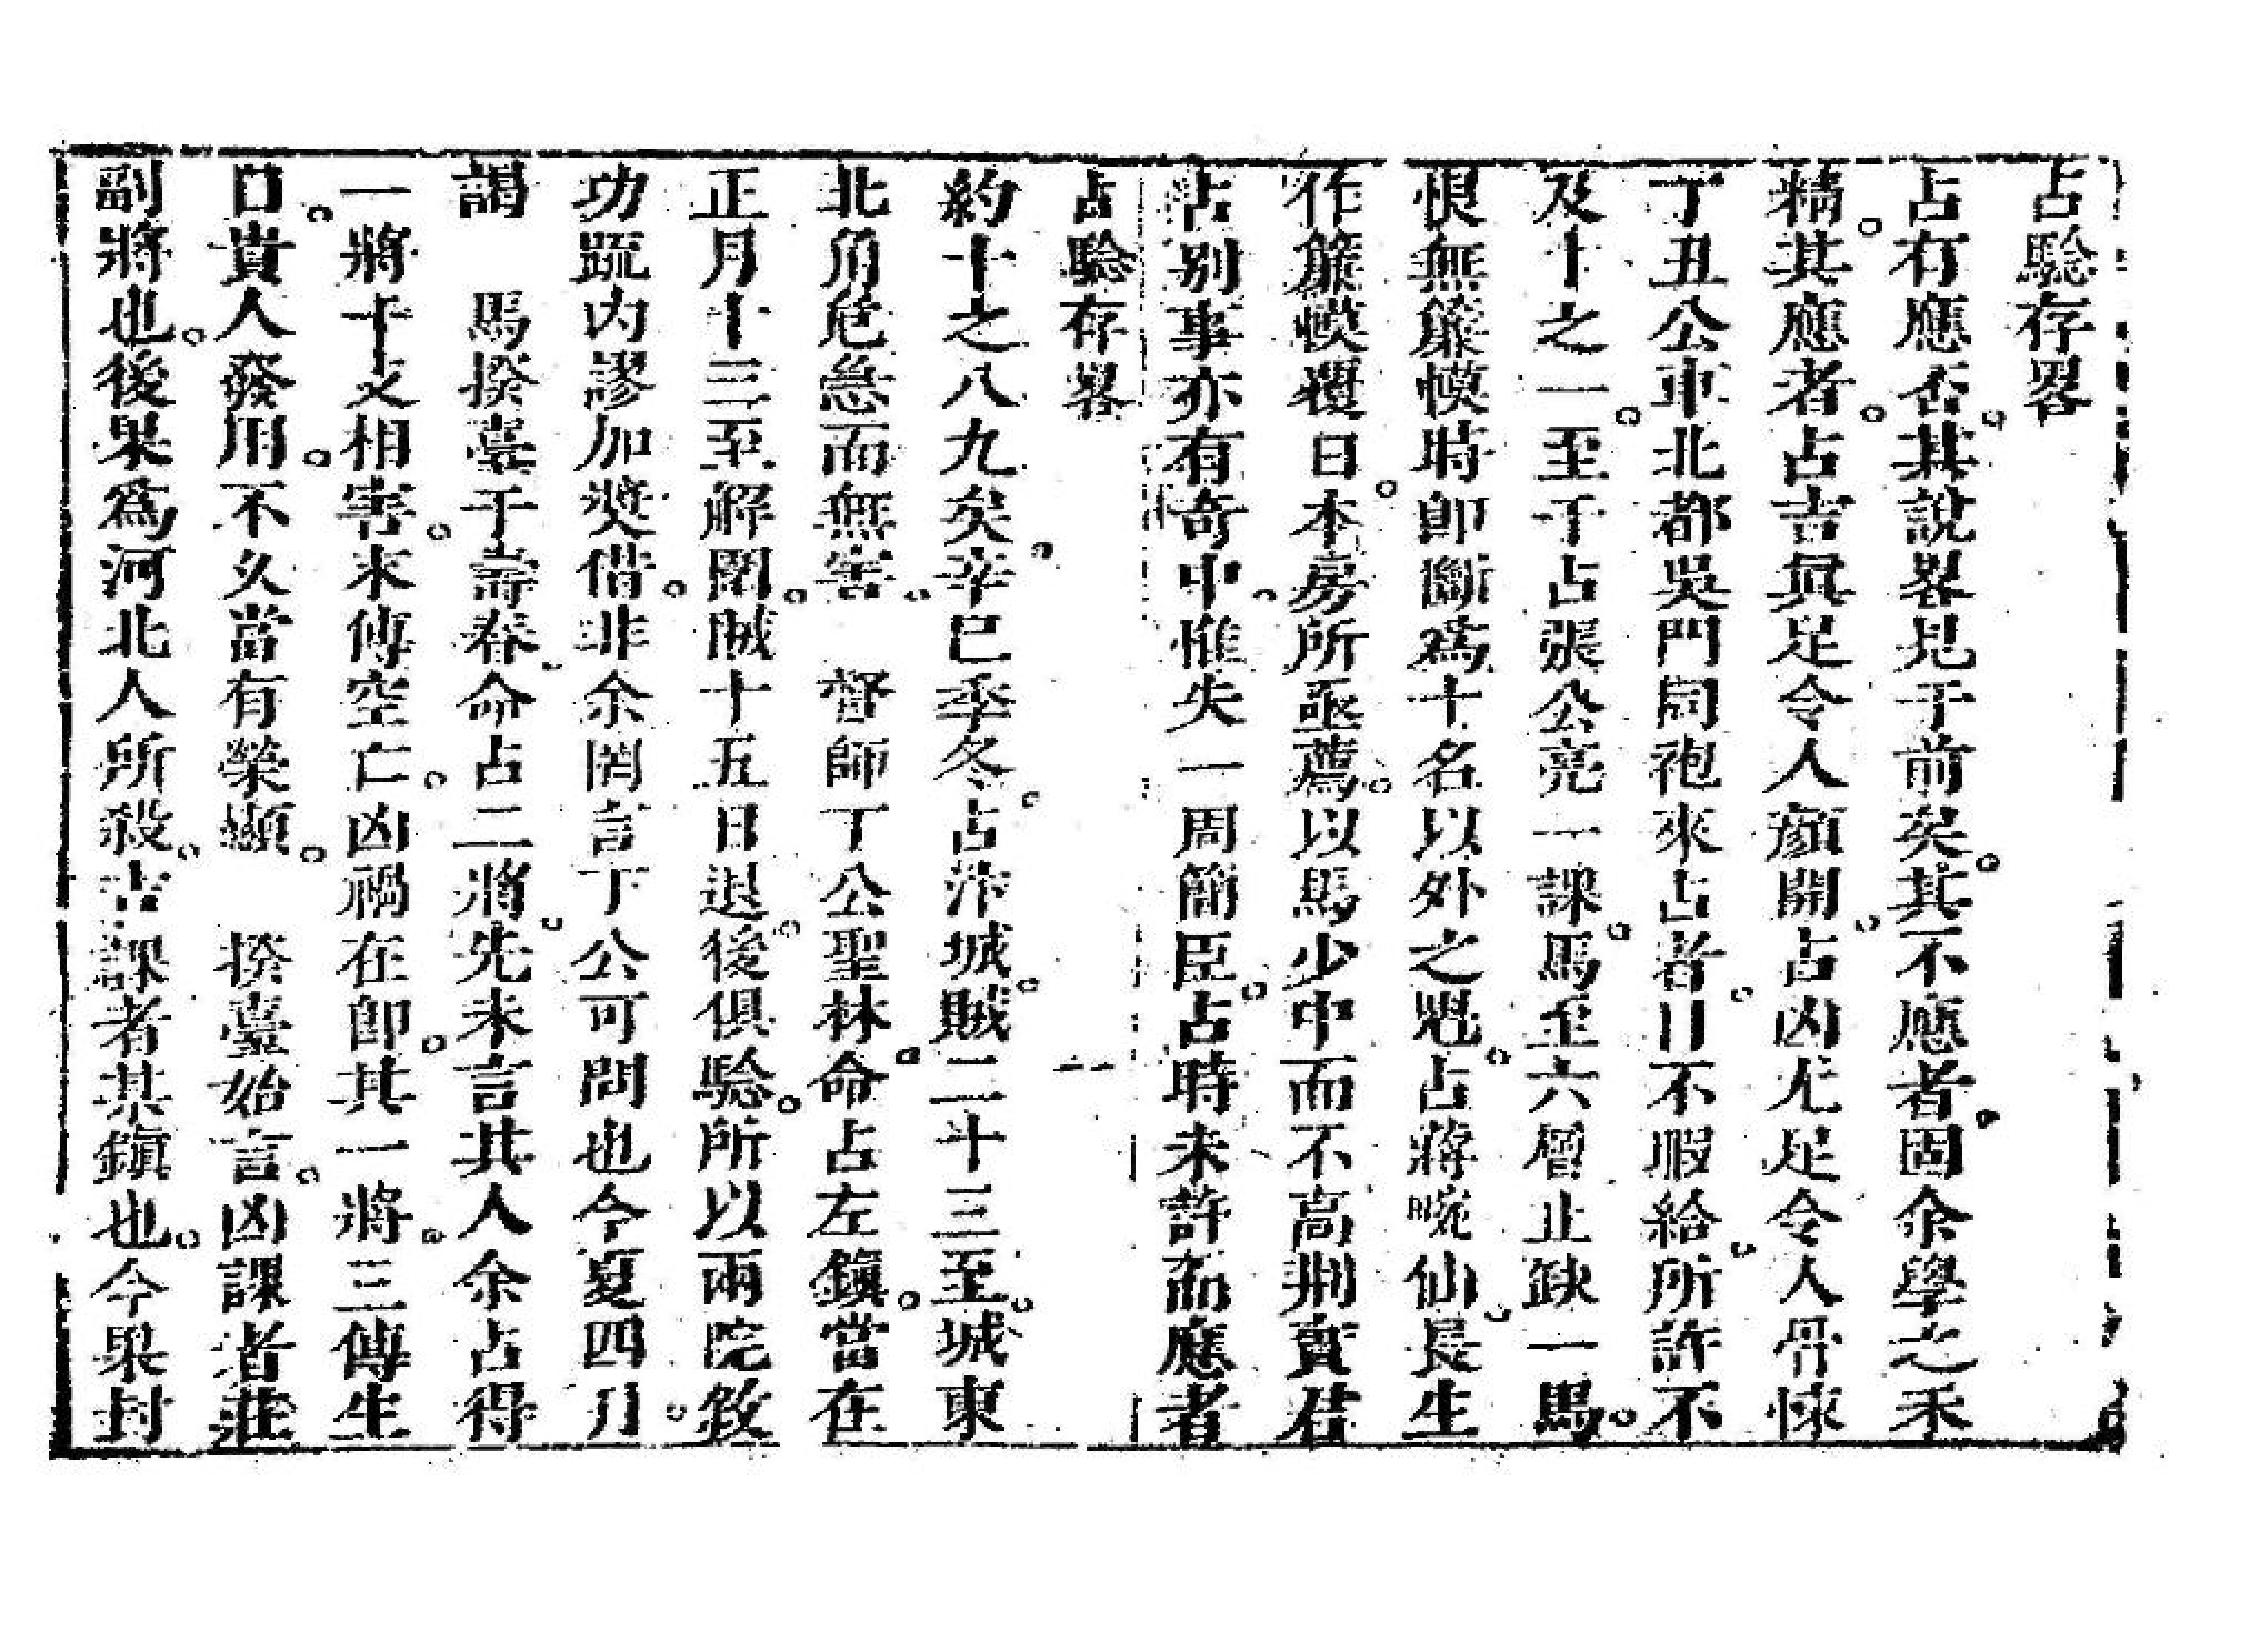 占驗存畧
占有應否其說畧見于前矣其不應者固余學之未
精其應者占吉眞足令人顏開占凶尤足令人骨悚
丁丑公車北都吳門同袍來占者日不暇給所許不
及十之一至于占張公亮一課馬至六層止缺一馬
恨無簾幙時卽斷爲十名以外之魁占蔣畹仙長生
作簾幙覆日本房所亟薦以馬少中而不高荆實君
占別事亦有奇中惟失一周簡臣占時未許而應者
占驗存畧 二
約十之八九矣辛巳季冬占汴城賊二十三至城東
北角危急而無害 督師丁公聖林命占左鎭當在
正月十三至解圍賊十五日退後俱驗所以兩院敘
功疏內謬加奬借非余罔言丁公可問也今夏四月
謁 馬撫臺于壽春命占二將先未言其人余占得
一將干支相害末傳空亡凶禍在卽其一將三傳生
日貴人發用不久當有榮顯 撫臺始言凶課者莊
副將也後果爲河北人所殺吉課者某鎭也今果封